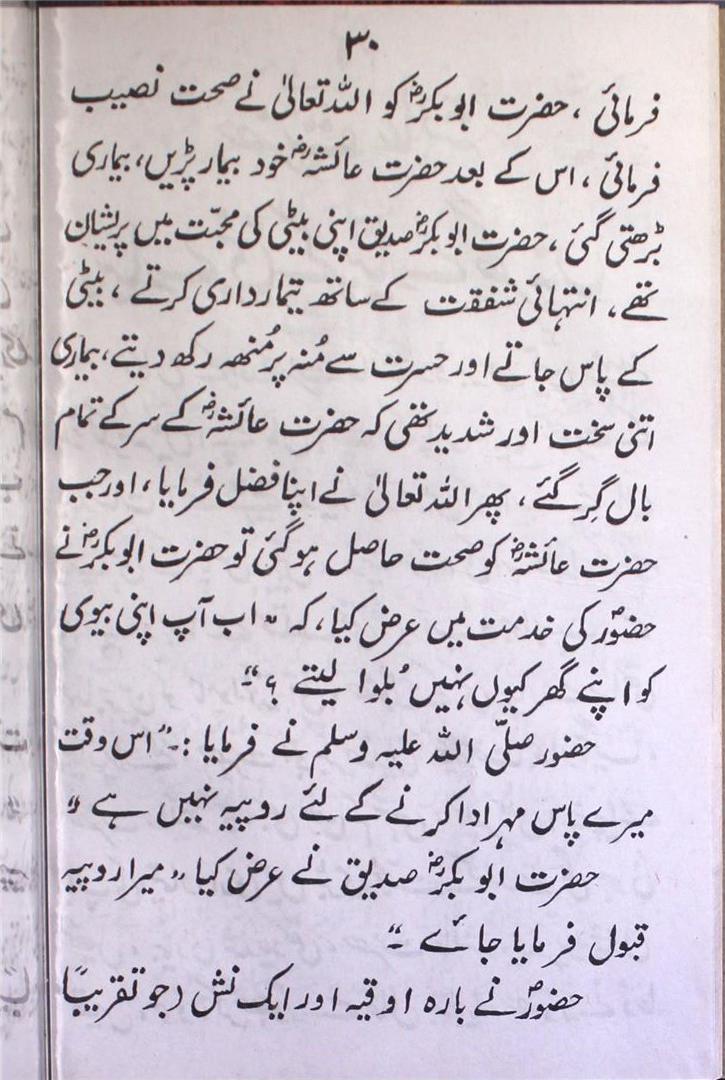 ۳۰
فرمائی ، حضرت ابو بکرؓ کو اللہ تعالیٰ نے صحت نصیب
فرمائی ، اس کے بعد حضرت عائشہؓ خود بیمار پڑیں، بیماری
بڑھتی گئی ، حضرت ابو بکرؓ صدیق اپنی بیٹی کی محبّت میں پریشان
تھے ، انتہائی شفقت کے ساتھ تیمارداری کرتے ، بیٹی
کے پاس جاتے اور حسرت سے مُنہ پر مُنھ رکھ دیتے، بیماری
اتنی سخت اور شدید تھی کہ حضرت عائشہؓ کے سر کے تمام
بال گِر گئے ، پھر اللہ تعالیٰ نے اپنا فضل فرمایا ، اور جب
حضرت عائشہؓ کو صحت حاصل ہوگئی تو حضرت ابو بکرؓ نے
حضورؐ کی خدمت میں عرض کیا ، کہ " اب آپ اپنی بیوی
کو اپنے گھر کیوں نہیں بُلوا لیتے ؟ "۔
حضور صلّی اللہ علیہ وسلم نے فرمایا :۔ " اس وقت
میرے پاس مہر ادا کرنے کے لئے روپیہ نہیں ہے "
حضرت ابو بکرؓ صدیق نے عرض کیا " میرا روپیہ
قبول فرمایا جائے ۔"
حضورؐ نے بارہ اوقیہ اور ایک نش (جو تقریباً